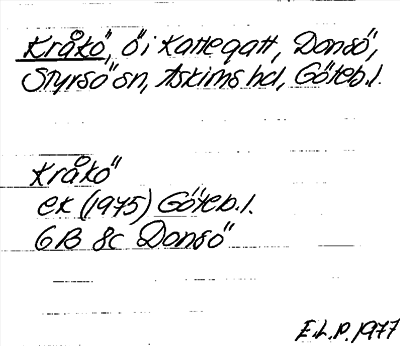 Kråkö, ö i Kattegatt, Donsö,
Styrsö sn, Askims hd, Göteb. l.
Kråkö
ek (1975) Göteb. l.
6B 8c Donsö
E.L.P. 1977